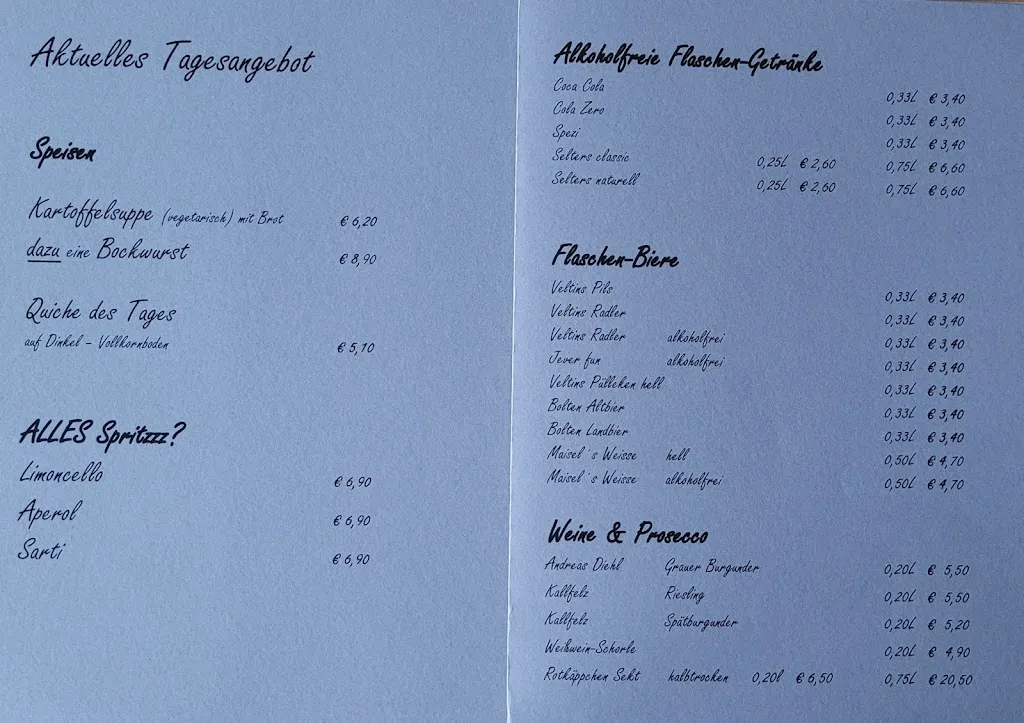 Aktuelles Tagesangebot
Speisen
Kartoffelsuppe (vegetarisch) mit Brot € 6,20
dazu eine Bockwurst € 8,90
Quiche des Tages
auf Dinkel – Vollkornboden € 5,10
ALLES Spritzzz?
Limoncello € 6,90
Aperol € 6,90
Sarti € 6,90
Alkoholfreie Flaschen-Getränke
Coca Cola 0,33L € 3,40
Cola Zero 0,33L € 3,40
Spezi 0,33L € 3,40
Selters classic 0,25L € 2,60 0,75L € 6,60
Selters naturell 0,25L € 2,60 0,75L € 6,60
Flaschen-Biere
Veltins Pils 0,33L € 3,40
Veltins Radler 0,33L € 3,40
Veltins Radler alkoholfrei 0,33L € 3,40
Jever fun alkoholfrei 0,33L € 3,40
Veltins Pülleken hell 0,33L € 3,40
Bolten Altbier 0,33L € 3,40
Bolten Landbier 0,33L € 3,40
Maisel´s Weisse hell 0,50L € 4,70
Maisel´s Weisse alkoholfrei 0,50L € 4,70
Weine & Prosecco
Andreas Diehl Grauer Burgunder 0,20L € 5,50
Kallfelz Riesling 0,20L € 5,50
Kallfelz Spätburgunder 0,20L € 5,20
Weißwein-Schorle 0,20L € 4,90
Rotkäppchen Sekt halbtrocken 0,20l € 6,50 0,75L € 20,50